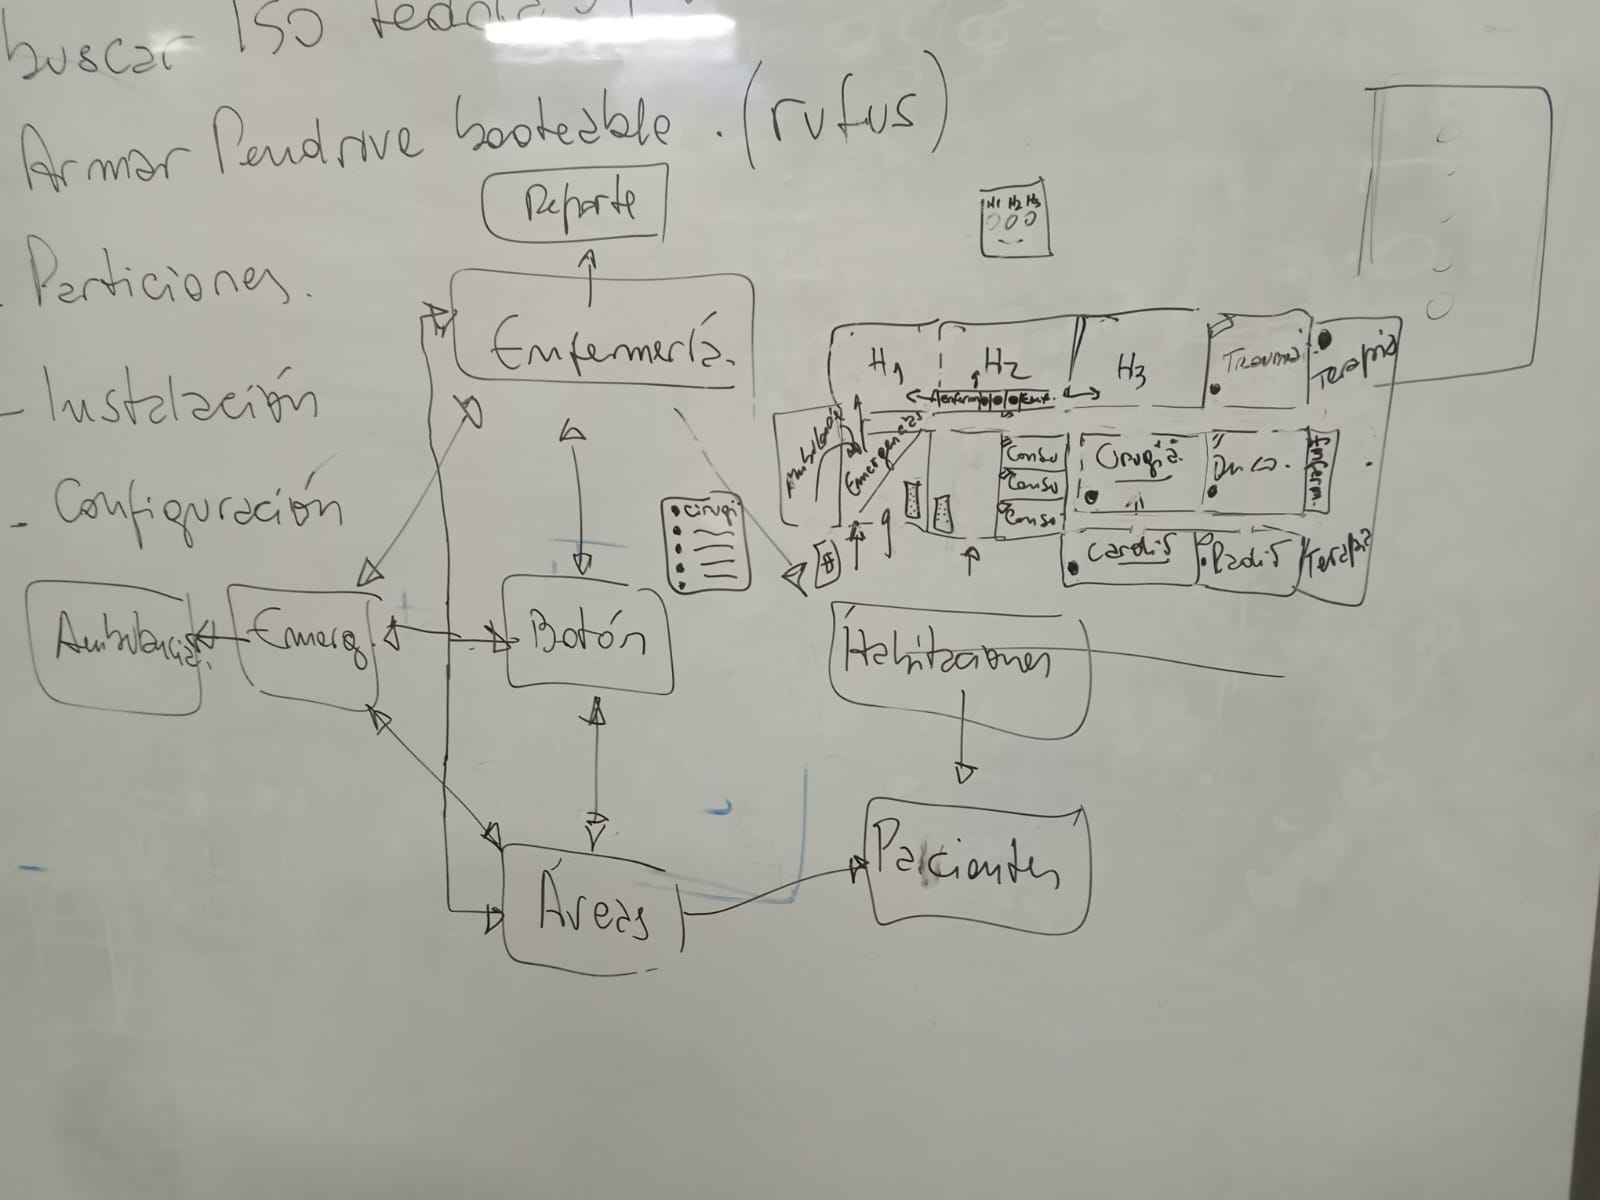 buscar ISO
Armar Pendrive booteable. (rufus)
- Particiones.
- Instalación
- Configuración
Reporte
Enfermería.
Ambulancia.
Emerg.
Botón
Áreas
Habitaciones
Pacientes
cirugi
H1 H2 H3
H1
H2
H3
Trauma
Terapia
Ambulancia
Emergencias
Conso
Conso
Conso
Cirugía.
Onco.
Enferm.
Cardio
Radio
Terapia